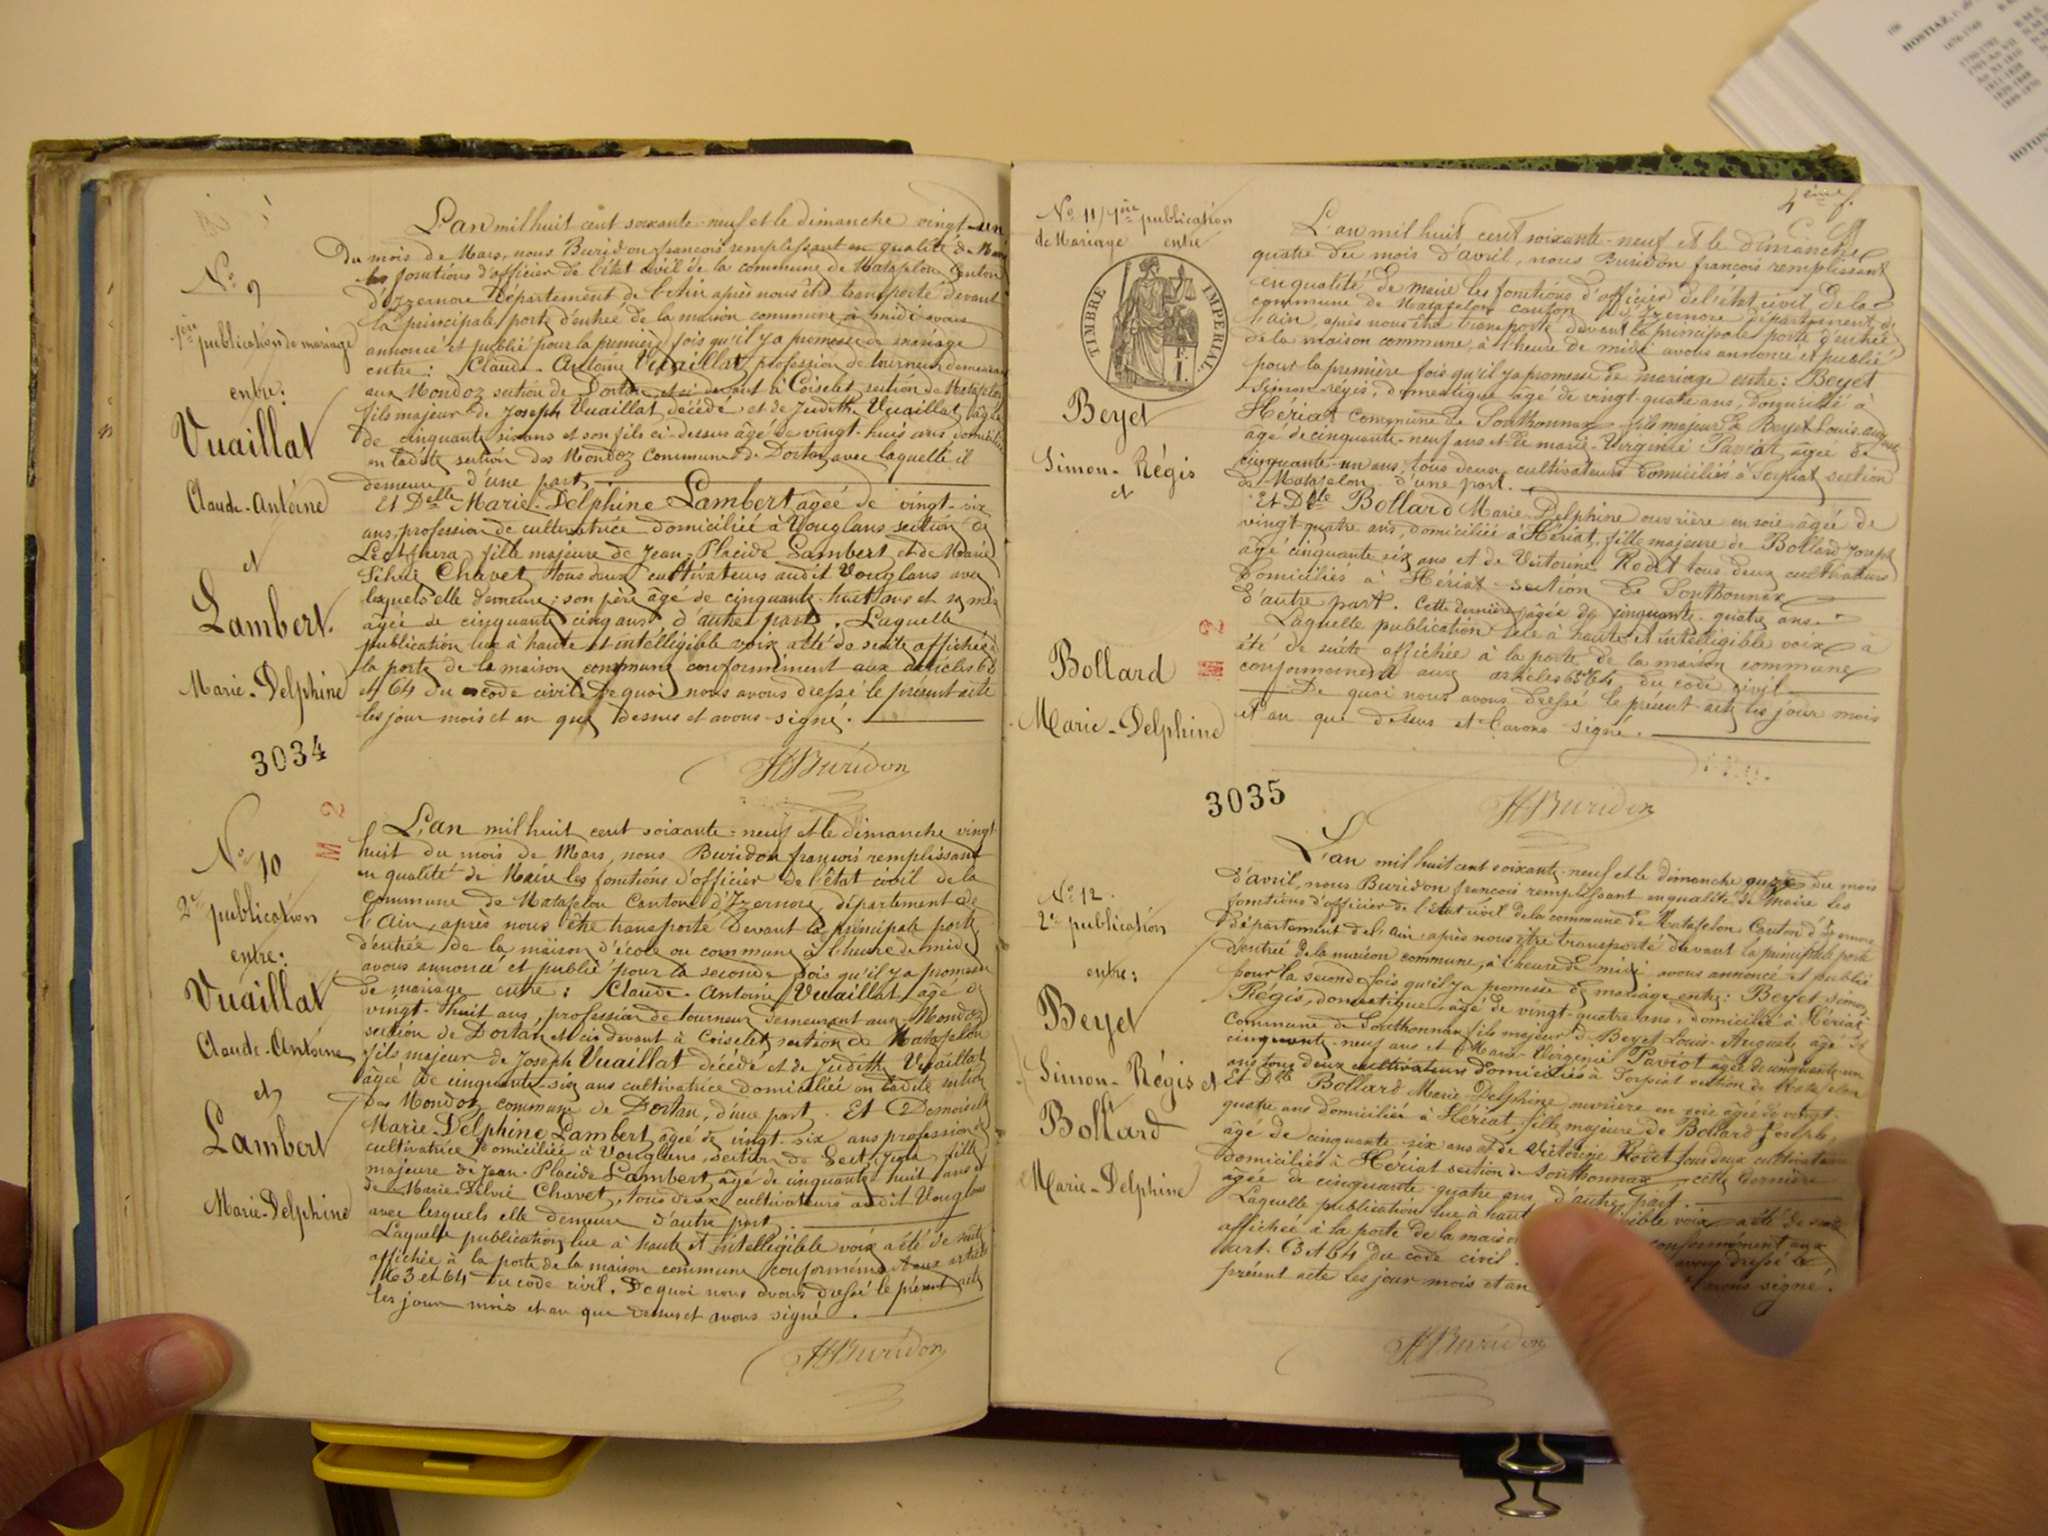 No 9
1ère publication de mariage
entre:
Vuaillat
Claude-Antoine
et
Lambert.
Marie-Delphine
3034
L'an mil huit cent soixante-neuf et le dimanche vingt-un
du mois de Mars, nous Buridon françois remplissant en qualité de Maire
les fonctions d'officier de l'état civil de la commune de Matafelon Canton
d'Izernore Département de l'Ain après nous être transporté devant
la principale porte d'entrée de la maison commune à midi avons
annoncé et publié pour la première fois qu'il y a promesse de mariage
entre: Claude-Antoine Vuaillat, profession de tourneur demeurant
aux Mondoz section de Dortan, et ci devant à Coiselet section de Matafelon
fils majeur de Joseph Vuaillat décédé et de Judith Vuaillat âgée
de cinquante six ans et son fils ci-dessus âgé de vingt-huit ans domiciliée
en ladite section des Mondoz commune de Dortan avec laquelle il
demeure d'une part,
Et Delle Marie-Delphine Lambert âgée de vingt-six
ans, profession de cultivatrice domiciliée à Vouglans section de
Lect fille majeure de Jean-Placide Lambert et de Marie
Silvie Chavet tous deux cultivateurs audit Vouglans avec
lesquels elle demeure: son père âgé de cinquante-huit ans et sa mère
âgée de cinquante cinq ans d'autre part. Laquelle
publication lue à haute et intelligible voix a été de suite affichée à
la porte de la maison commune conformément aux articles 63
et 64 du code civil de quoi nous avons dressé le présent acte
les jour mois et an que dessus et avons signé.
Buridon
No 10
2e publication
entre:
Vuaillat
Claude-Antoine
et
Lambert
Marie-Delphine
M 2
L'an mil huit cent soixante-neuf et le dimanche vingt
huit du mois de Mars, nous Buridon françois remplissant
en qualité de Maire les fonctions d'officier de l'état civil de la
Commune de Matafelon Canton d'Izernore, département de
l'Ain, après nous être transporté devant la principale porte
d'entrée de la maison d'école ou commune à l'heure de midi
avons annoncé et publié pour la seconde fois qu'il y a promesse
de mariage entre: Claude-Antoine Vuaillat, âgé de
vingt-huit ans, profession de tourneur demeurant aux Mondoz
section de Dortan et ci devant à Coiselet section de Matafelon
fils majeur de Joseph Vuaillat décédé et de Judith Vuaillat
âgée de cinquante-six ans cultivatrice domiciliée en ladite section
des Mondoz commune de Dortan, d'une part. Et Demoiselle
Marie-Delphine Lambert âgée de vingt-six ans profession de
cultivatrice domiciliée à Vouglans, section de Lect, Jura fille
majeure de Jean-Placide Lambert, âgé de cinquante huit ans et
de Marie-Silvie Chavet, tous deux cultivateurs audit Vouglans
avec lesquels elle demeure d'autre part.
Laquelle publication lue à haute et intelligible voix a été de suite
affichée à la porte de la maison commune conformément aux articles
63 et 64 du code civil. De quoi nous avons dressé le présent acte
les jour mois et an que dessus et avons signé.
Buridon
4ème f.
No 11 / 1ère publication
de Mariage entre
TIMBRE IMPERIAL.
Beyet
Simon-Régis
et
Bollard
Marie-Delphine
3035
L'an mil huit cent soixante-neuf et le dimanche
quatre du mois d'avril, nous Buridon françois remplissant
en qualité de maire les fonctions d'officier de l'état civil de la
commune de Matafelon canton d'Izernore département de
l'Ain, après nous être transporté devant la principale porte d'entrée
de la maison commune, à l'heure de midi avons annoncé et publié
pour la première fois qu'il y a promesse de mariage entre: Beyet
Simon-régis, domestique âgé de vingt-quatre ans, domicilié à
Hériat commune de Sonthonnax fils majeur de Beyet Louis-auguste
âgé de cinquante-neuf ans et de marie-Virginie Paviot âgée de
cinquante-un ans, tous deux cultivateurs domiciliés à section
de Matafelon d'une part.
Et Dlle Bollard Marie Delphine ouvrière en soie âgée de
vingt-quatre ans, domiciliée à Hériat, fille majeure de Bollard Joseph
âgé cinquante six ans et de Victorine Rodet tous deux cultivateurs
domiciliés à Hériat section de Sonthonnax
d'autre part. Cette dernière âgée de cinquante-quatre ans.
Laquelle publication lue à haute et intelligible voix a
été de suite affichée à la porte de la maison commune
conformément aux articles 63 et 64 du code civil
De quoi nous avons dressé le présent acte les jour mois
et an que dessus et l'avons signé.
Buridon
No 12.
2e publication
entre:
Beyet
Simon-Régis et
Bollard
Marie-Delphine
L'an mil huit cent soixante-neuf et le dimanche onze du mois
d'avril, nous Buridon françois remplissant en qualité de Maire les
fonctions d'officier de l'état civil de la commune de Matafelon Canton d'Izernore
Département de l'Ain après nous être transporté devant la principale porte
d'entrée de la maison commune, à l'heure de midi avons annoncé et publié
pour la seconde fois qu'il y a promesse de mariage entre: Beyet Simon
Régis, domestique, âgé de vingt-quatre ans, domicilié à Hériat
commune de Sonthonnax fils majeur de Beyet Louis-Auguste âgé de
cinquante-neuf ans et de Marie-Virginie Paviot âgée de cinquante-un
ans tous deux cultivateurs domiciliés à section de Matafelon
Et Dlle Bollard Marie-Delphine ouvrière en soie âgée de vingt-
quatre ans domiciliée à Hériat, fille majeure de Bollard Joseph,
âgé de cinquante-six ans et de Victorine Rodet tous deux cultivateurs
domiciliés à Hériat section de Sonthonnax, cette dernière
âgée de cinquante-quatre ans, d'autre part.
Laquelle publication lue à haute voix a été de suite
affichée à la porte de la maison conformément aux
art. 63 et 64 du code civil. avons dressé le
présent acte les jour mois et an l'avons signé.
Buridon
HOSTIAZ